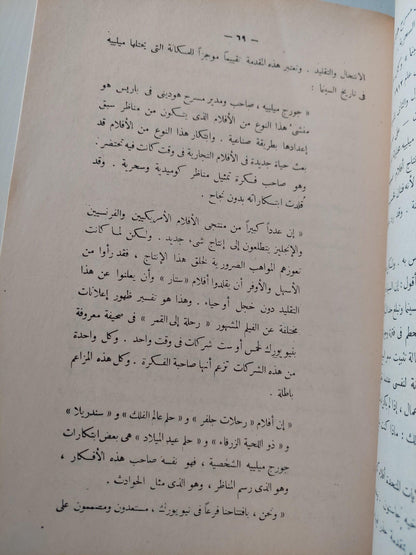 — ٦٩ —
الانتحال والتقليد . وتعتبر هذه المقدمة تقييماً موجزاً للمكانة التى يحتلها ميلييه
فى تاريخ السينما :
« جورج ميلييه ، صاحب ومدير مسرح هودينى فى باريس هو
منشىء هذا النوع من الأفلام الذى يتكون من مناظر سبق
إعدادها بطريقة صناعية . وابتكار هذا النوع من الأفلام قد
بعث حياة جديدة فى الأفلام التجارية فى وقت كانت فيه تحتضر .
وهو صاحب فكرة تمثيل مناظر كوميدية وسحرية . وقد
قلدت ابتكاراته بدون نجاح .
« إن عدداً كبيراً من منتجى الأفلام الأمريكيين والفرنسيين
والإنجليز يتطلعون إلى إنتاج شىء جديد . ولكن لما كانت
تعوزهم المواهب الضرورية لخلق هذا الإنتاج ، فقد رأوا من
الأسهل والأوفر أن يقلدوا أفلام « ستار » وأن يعلنوا عن هذا
التقليد دون خجل أو حياء . وهذا هو تفسير ظهور إعلانات
مختلفة عن الفيلم المشهور « رحلة إلى القمر » فى صحيفة معروفة
بنيويورك لخمس أو ست شركات فى وقت واحد . وكل واحدة
من هذه الشركات تزعم أنها صاحبة الفكرة . وكل هذه المزاعم
باطلة .
« إن أفلام « رحلات جلفر » و « حلم عالم الفلك » و « سندريلا »
و « ذو اللحية الزرقاء » و « حلم عيد الميلاد » هى بعض ابتكارات
جورج ميلييه الشخصية ، فهو نفسه صاحب هذه الأفكار ،
وهو الذى رسم المناظر ، وهو الذى مثل الحوادث .
« ونحن ، بافتتاحنا فرعاً فى نيويورك ، مستعدون ومصممون على